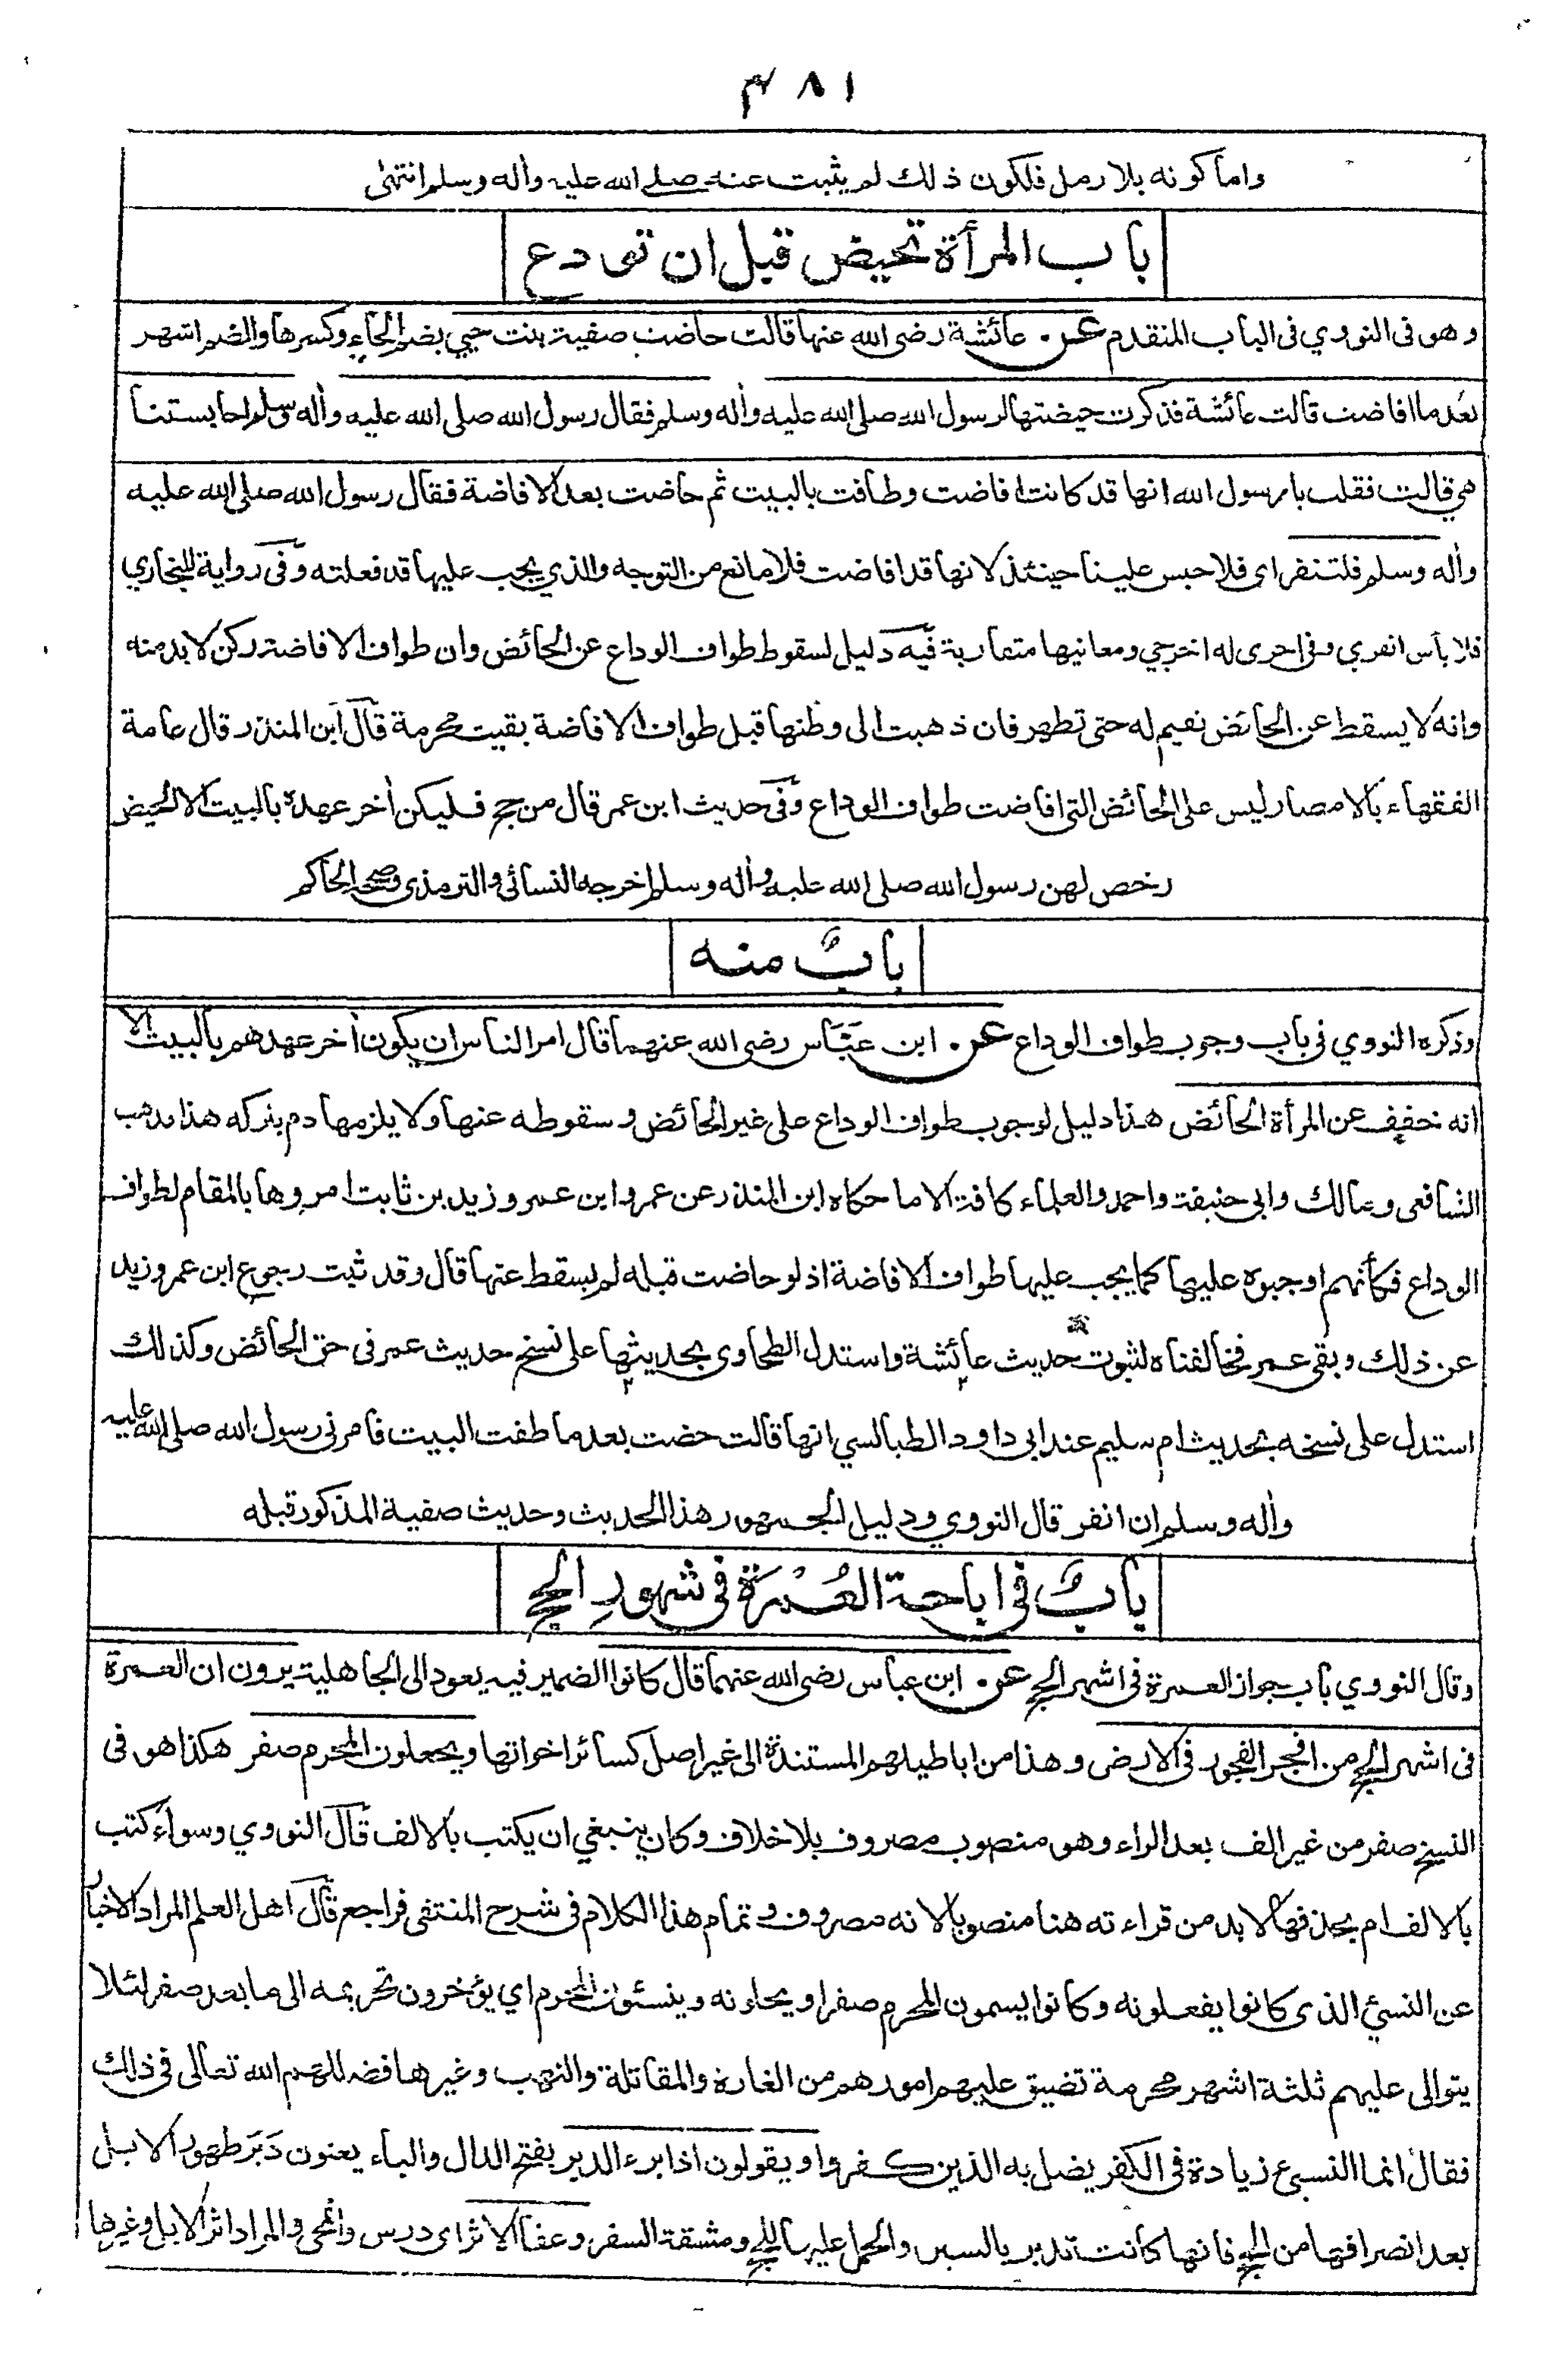 ٤٨١
واما كونه بلا رمل فلكون ذلك لم يثبت عنه صلى الله عليه واٰله وسلم انتهى
باب المرأة تحيض قبل ان تودع
وهو فى النووي فى الباب المتقدم عن عائشة رضى الله عنها قالت حاضت صفية بنت حيي بضم الحاء وكسرها والضم اشهر
بعد ما افاضت قالت عائشة فذكرت حيضتها لرسول الله صلى الله عليه واٰله وسلم فقال رسول الله صلى الله عليه واٰله وسلم احابستنا
هي قالت فقلت يا رسول الله انها قد كانت افاضت وطافت بالبيت ثم حاضت بعد الافاضة فقال رسول الله صلى الله عليه
واٰله وسلم فلتنفر اى فلا حبس علينا حينئذ لانها قد افاضت فلا مانع من التوجه والذي يجب عليها قد فعلته وفى رواية للبخاري
فلا بأس انفري وفى اخرى له اخرجي ومعانيها متقاربة فيه دليل لسقوط طواف الوداع عن الحائض وان طواف الافاضة ركن لا بد منه
وانه لا يسقط عن الحائض نقيم له حتى تطهر فان ذهبت الى وطنها قبل طواف الافاضة بقيت محرمة قال ابن المنذر قال عامة
الفقهاء بالامصار ليس على الحائض التى افاضت طواف الوداع وفى حديث ابن عمر قال من حج فليكن اٰخر عهده بالبيت الا الحيض
رخص لهن رسول الله صلى الله عليه واٰله وسلم اخرجه النسائى والترمذى وصححه الحاكم
بابٌ منه
وذكره النووي فى باب وجوب طواف الوداع عن ابن عَبَّاس رضى الله عنهما قال امر الناس ان يكون اٰخر عهدهم بالبيت الا
انه خفف عن المرأة الحائض هذا دليل لوجوب طواف الوداع على غير الحائض وسقوطه عنها ولا يلزمها دم بتركه هذا مذهب
الشافعى ومالك وابى حنيفة واحمد والعلماء كافة الا ما حكاه ابن المنذر عن عمر وابن عمر وزيد بن ثابت امروها بالمقام لطواف
الوداع فكأنهم اوجبوه عليها كما يجب عليها طواف الافاضة اذ لو حاضت قبله لم يسقط عنها قال وقد ثبت رجوع ابن عمر وزيد
عن ذلك وبقى عمر فخالفناه لثبوت حديث عائشة واستدل الطحاوى بحديثها على نسخ حديث عمر فى حق الحائض وكذلك
استدل على نسخه بحديث ام سليم عند ابى داود الطيالسي انها قالت حضت بعد ما طفت البيت فامرنى رسول الله صلى الله عليه
واٰله وسلم ان انفر قال النووي ودليل الجمهور هذا الحديث وحديث صفية المذكور قبله
بابٌ فى اباحة العُمْرَة فى شهورِ الحج
وقال النووي باب جواز العمرة فى اشهر الحج عن ابن عباس رضى الله عنهما قال كانوا الضمير فيه يعود الى الجاهلية يرون ان العمرة
فى اشهر الحج من افجر الفجور فى الارض وهذا من اباطيلهم المستندة الى غير اصل كسائر اخواتها ويجعلون المحرم صفر هكذا هو فى
النسخ صفر من غير الف بعد الراء وهو منصوب مصروف بلا خلاف وكان ينبغي ان يكتب بالالف قال النووي وسواء كتب
بالالف ام بحذفها لا بد من قراءته هنا منصوبا لانه مصروف وتمام هذا الكلام فى شرح المنتقى فراجع قال اهل العلم المراد الاخبار
عن النسئ الذى كانوا يفعلونه وكانوا يسمون المحرم صفرا ويحلونه وينسئون المحرم اي يؤخرون تحريمه الى ما بعد صفر لئلا
يتوالى عليهم ثلثة اشهر محرمة تضيق عليهم امورهم من الغارة والمقاتلة والنهب وغيرها فضللهم الله تعالى فى ذلك
فقال انما النسيء زيادة فى الكفر يضل به الذين كفروا ويقولون اذا برء الدبر بفتح الدال والباء يعنون دَبَرَ ظهور الابل
بعد انصرافها من الحج فانها كانت تدبر بالسير والحمل عليها للحج ومشقة السفر وعفا الاثر اى درس وانمحى والمراد اثر الابل وغيرها